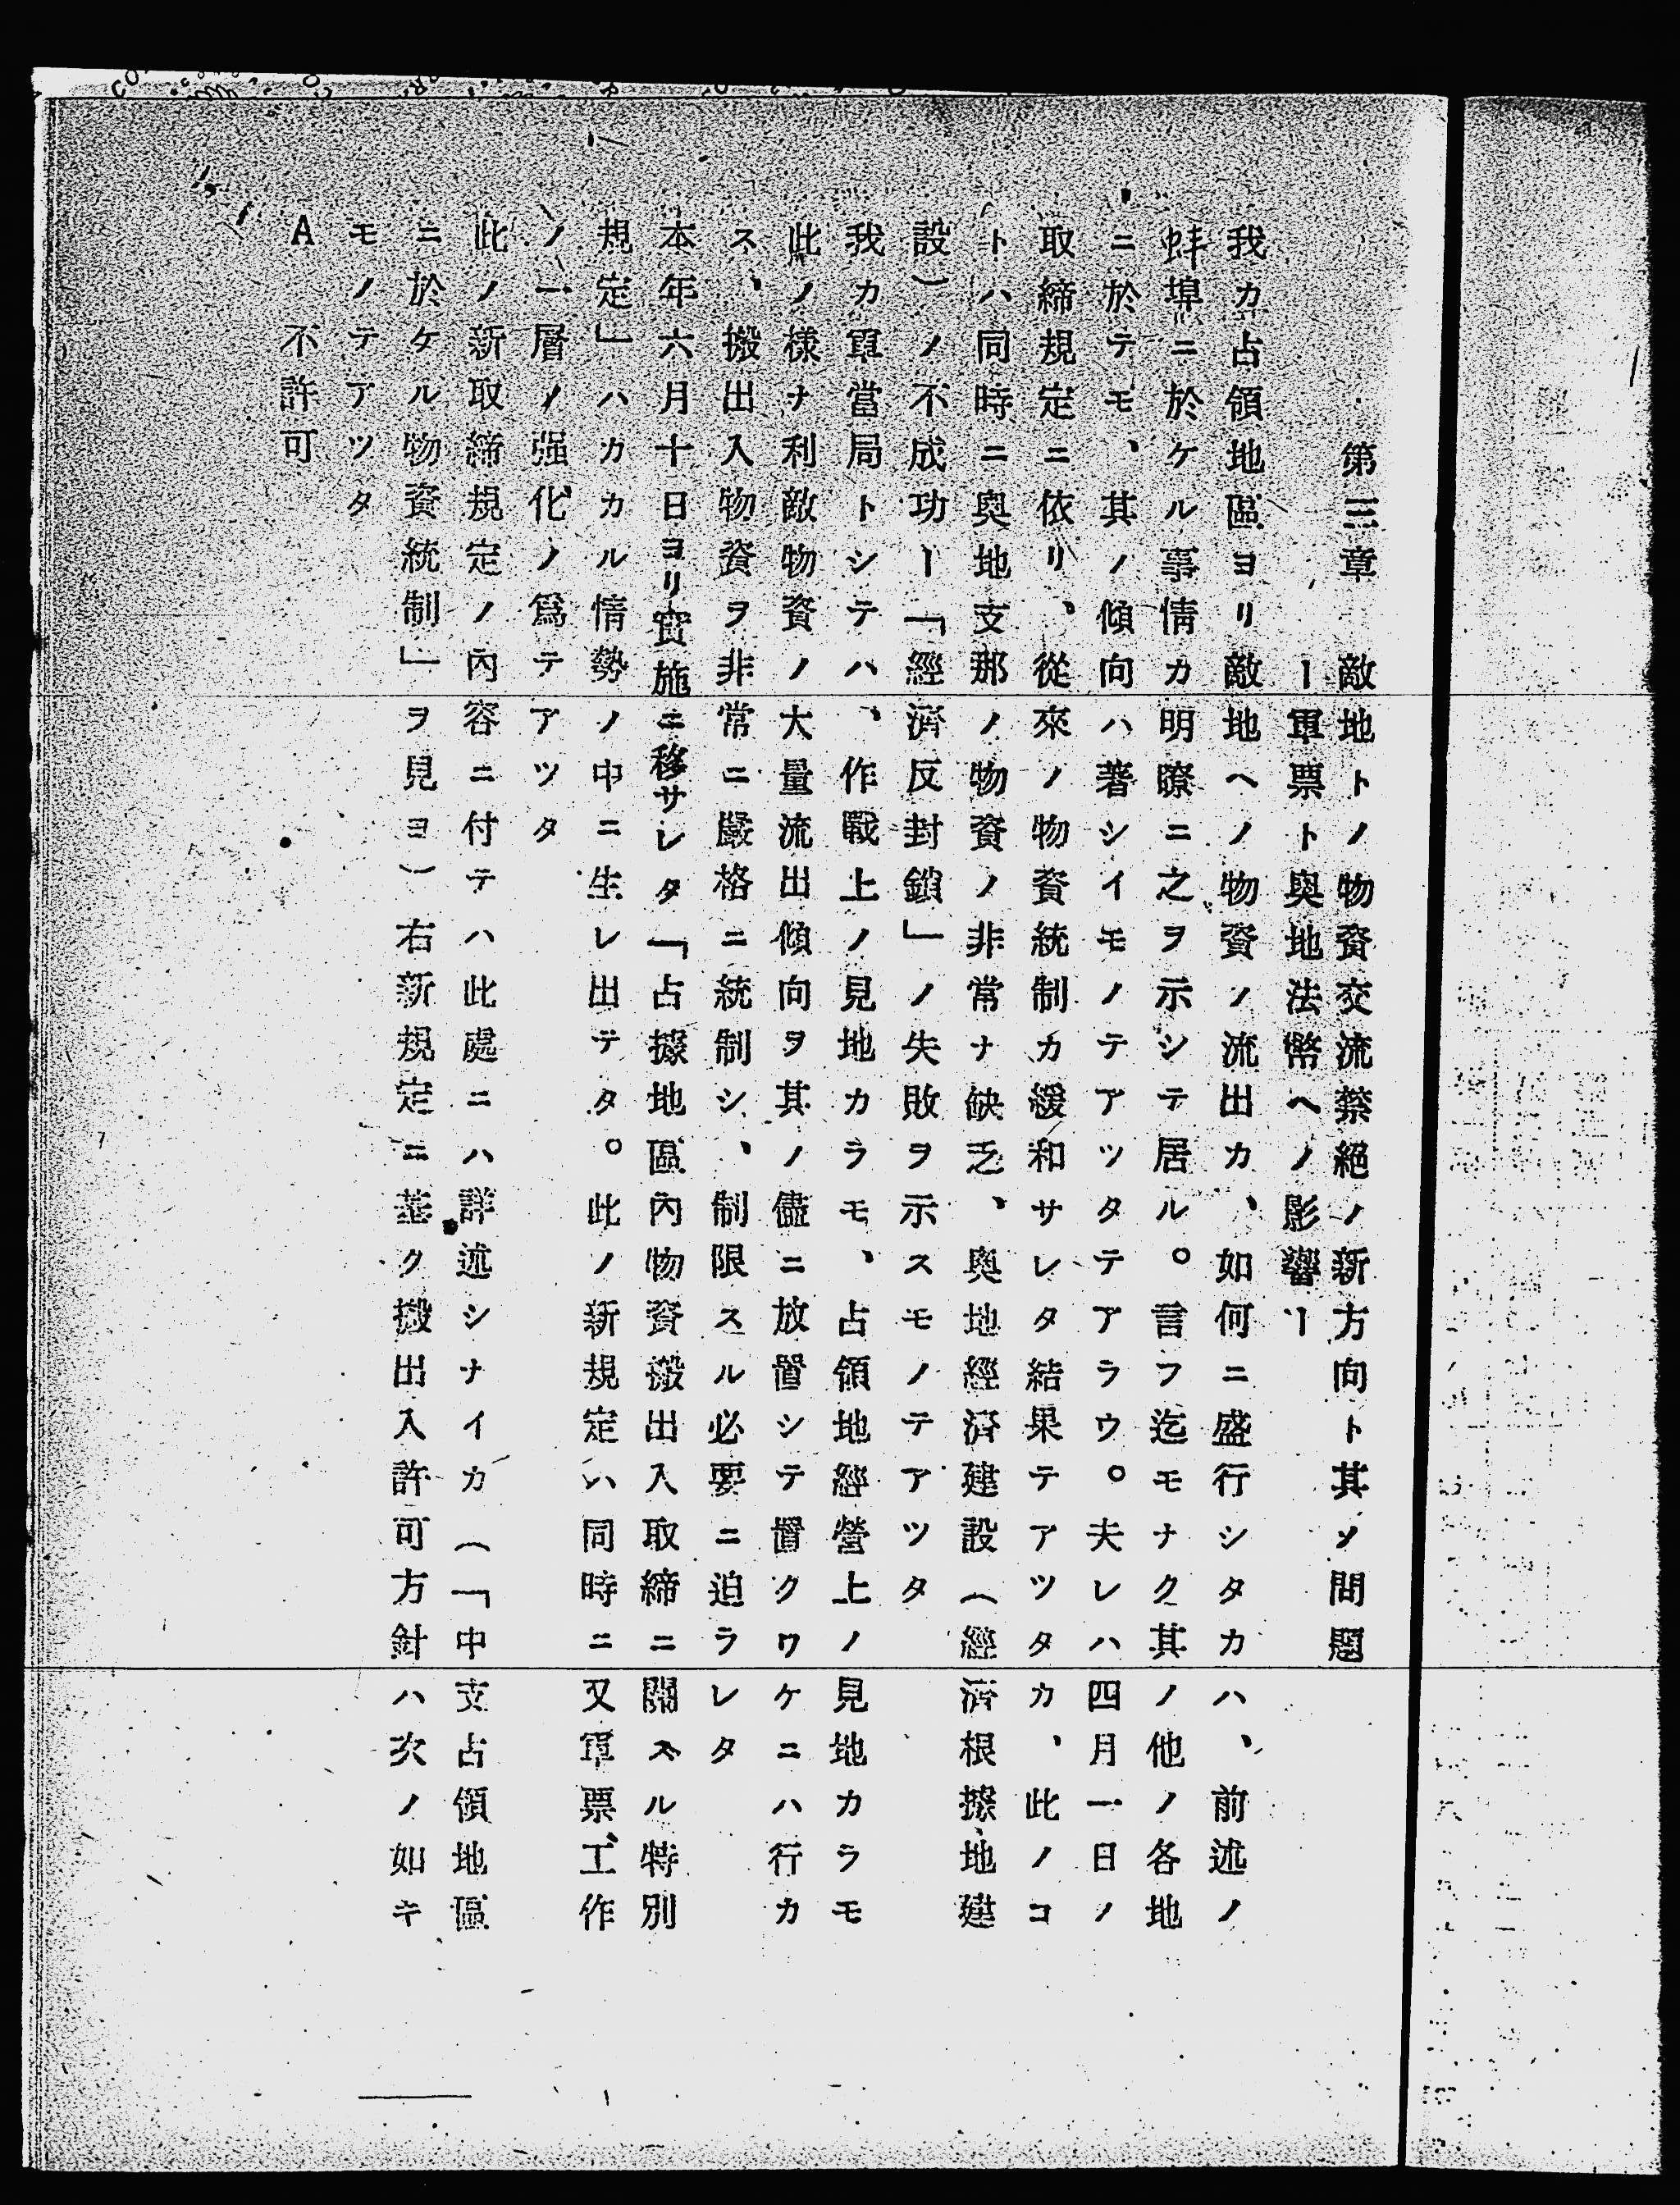 第三章　敵地トノ物資交流禁絕ノ新方向ト其ノ問題
ー軍票ト奥地法幣ヘノ影響ー
我カ占領地區ヨリ敵地ヘノ物資ノ流出カ、如何ニ盛行シタカハ、前述ノ
蚌埠ニ於ケル事情カ明瞭ニ之ヲ示シテ居ル。言フ迄モナク其ノ他ノ各地
ニ於テモ、其ノ傾向ハ著シイモノテアツタテアラウ。夫レハ四月一日ノ
取締規定ニ依リ、從來ノ物資統制カ緩和サレタ結果テアツタカ、此ノコ
トハ同時ニ奥地支那ノ物資ノ非常ナ缺乏、奥地經濟建設（經濟根據地建
設）ノ不成功ー「經濟反封鎖」ノ失敗ヲ示スモノテアツタ
我カ軍當局トシテハ、作戰上ノ見地カラモ、占領地經營上ノ見地カラモ
此ノ樣ナ利敵物資ノ大量流出傾向ヲ其ノ儘ニ放置シテ置クワケニハ行カ
ス、搬出入物資ヲ非常ニ嚴格ニ統制シ、制限スル必要ニ迫ラレタ
本年六月十日ヨリ實施ニ移サレタ「占據地區內物資搬出入取締ニ關スル特別
規定」ハカカル情勢ノ中ニ生レ出テタ。此ノ新規定ハ同時ニ又軍票工作
ノ一層ノ强化ノ爲テアツタ
此ノ新取締規定ノ內容ニ付テハ此處ニハ詳述シナイカ（「中支占領地區
ニ於ケル物資統制」ヲ見ヨ）右新規定ニ基ク搬出入許可方針ハ次ノ如キ
モノテアツタ
A　不許可